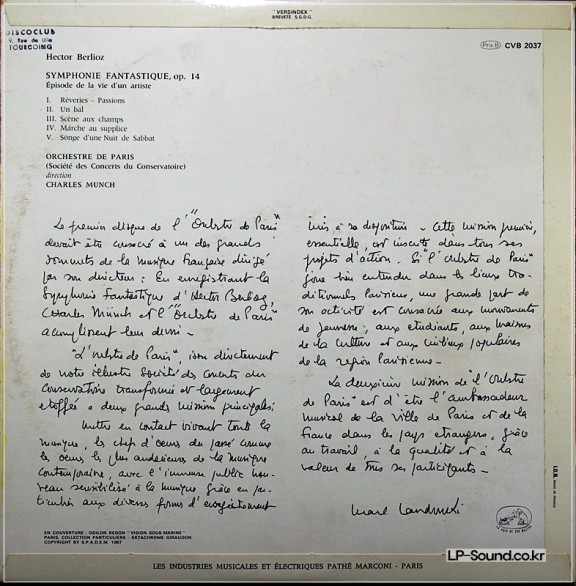 "VERSINDEX"
BREVETÉ S.G.D.G.
DISCOCLUB
9, Rue de Lille
TOURCOING
Prix B CVB 2037
Hector Berlioz
SYMPHONIE FANTASTIQUE, op. 14
Épisode de la vie d'un artiste
I. Rêveries - Passions
II. Un bal
III. Scène aux champs
IV. Marche au supplice
V. Songe d'une Nuit de Sabbat
ORCHESTRE DE PARIS
(Société des Concerts du Conservatoire)
direction
CHARLES MUNCH
Le premier disque de l'"Orchestre de Paris"
devait être consacré à un des grands
monuments de la musique française dirigé
par son directeur : En enregistrant la
Symphonie Fantastique d'Hector Berlioz,
Charles Münch et l'"Orchestre de Paris"
accomplissent leur devoir -
"L'orchestre de Paris", issu directement
de notre illustre Société des Concerts du
Conservatoire transformée et largement
étoffée a deux grandes missions principales :
mettre en contact vivant toute la
musique, les chefs d'oeuvre du passé comme
les oeuvres les plus audacieuses de la musique
contemporaine, avec l'immense public nou-
veau sensibilisé à la musique grâce en par-
ticulier aux diverses formes d'enregistrement
mis à sa disposition - Cette mission première,
essentielle, est inscrite dans tous ses
projets d'action. Si l'"orchestre de Paris"
se fera bien entendre dans les lieux tra-
ditionnels parisiens, une grande part de
son activité est consacrée aux mouvements
de jeunesse, aux étudiants, aux maisons
de la culture et aux milieux populaires
de la région parisienne -
La deuxième mission de "l'Orchestre
de Paris" est d'être l'ambassadeur
musical de la ville de Paris et de la
France dans les pays étrangers, grâce
au travail, à la qualité et à la
valeur de tous ses participants -
Marcel Landowski
LA VOIX DE SON MAITRE
I.D.N. MADE IN FRANCE
EN COUVERTURE - ODILON REDON "VISION SOUS-MARINE"
PARIS, COLLECTION PARTICULIÈRE - EKTACHROME GIRAUDON
COPYRIGHT BY S.P.A.D.E.M. 1967
LES INDUSTRIES MUSICALES ET ÉLECTRIQUES PATHÉ MARCONI - PARIS
LP-Sound.co.kr